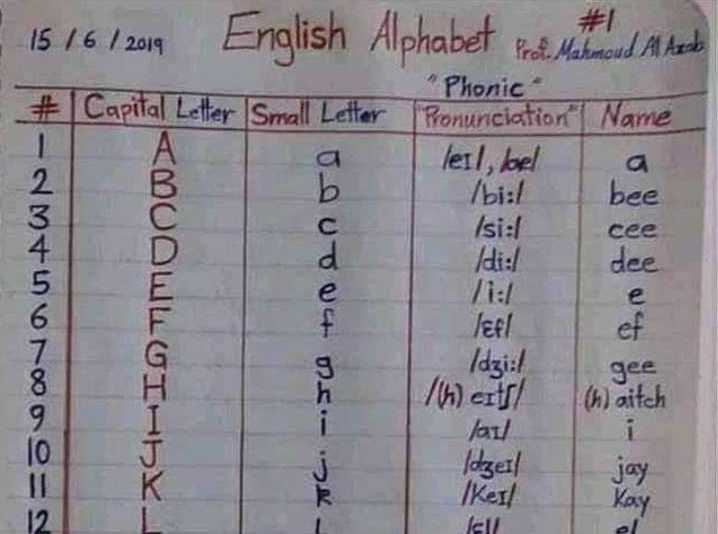 15 / 6 / 2019 English Alphabet #1
Prof. Mahmoud Al Azab
"Phonic"
# Capital Letter Small Letter "Pronunciation" Name
1 A a /eɪ/, /æ/ a
2 B b /bi:/ bee
3 C c /si:/ cee
4 D d /di:/ dee
5 E e /i:/ e
6 F f /ɛf/ ef
7 G g /dʒi:/ gee
8 H h /(h) eɪtʃ/ (h) aitch
9 I i /aɪ/ i
10 J j /dʒeɪ/ jay
11 K k /Keɪ/ Kay
12 L l /ɛl/ el